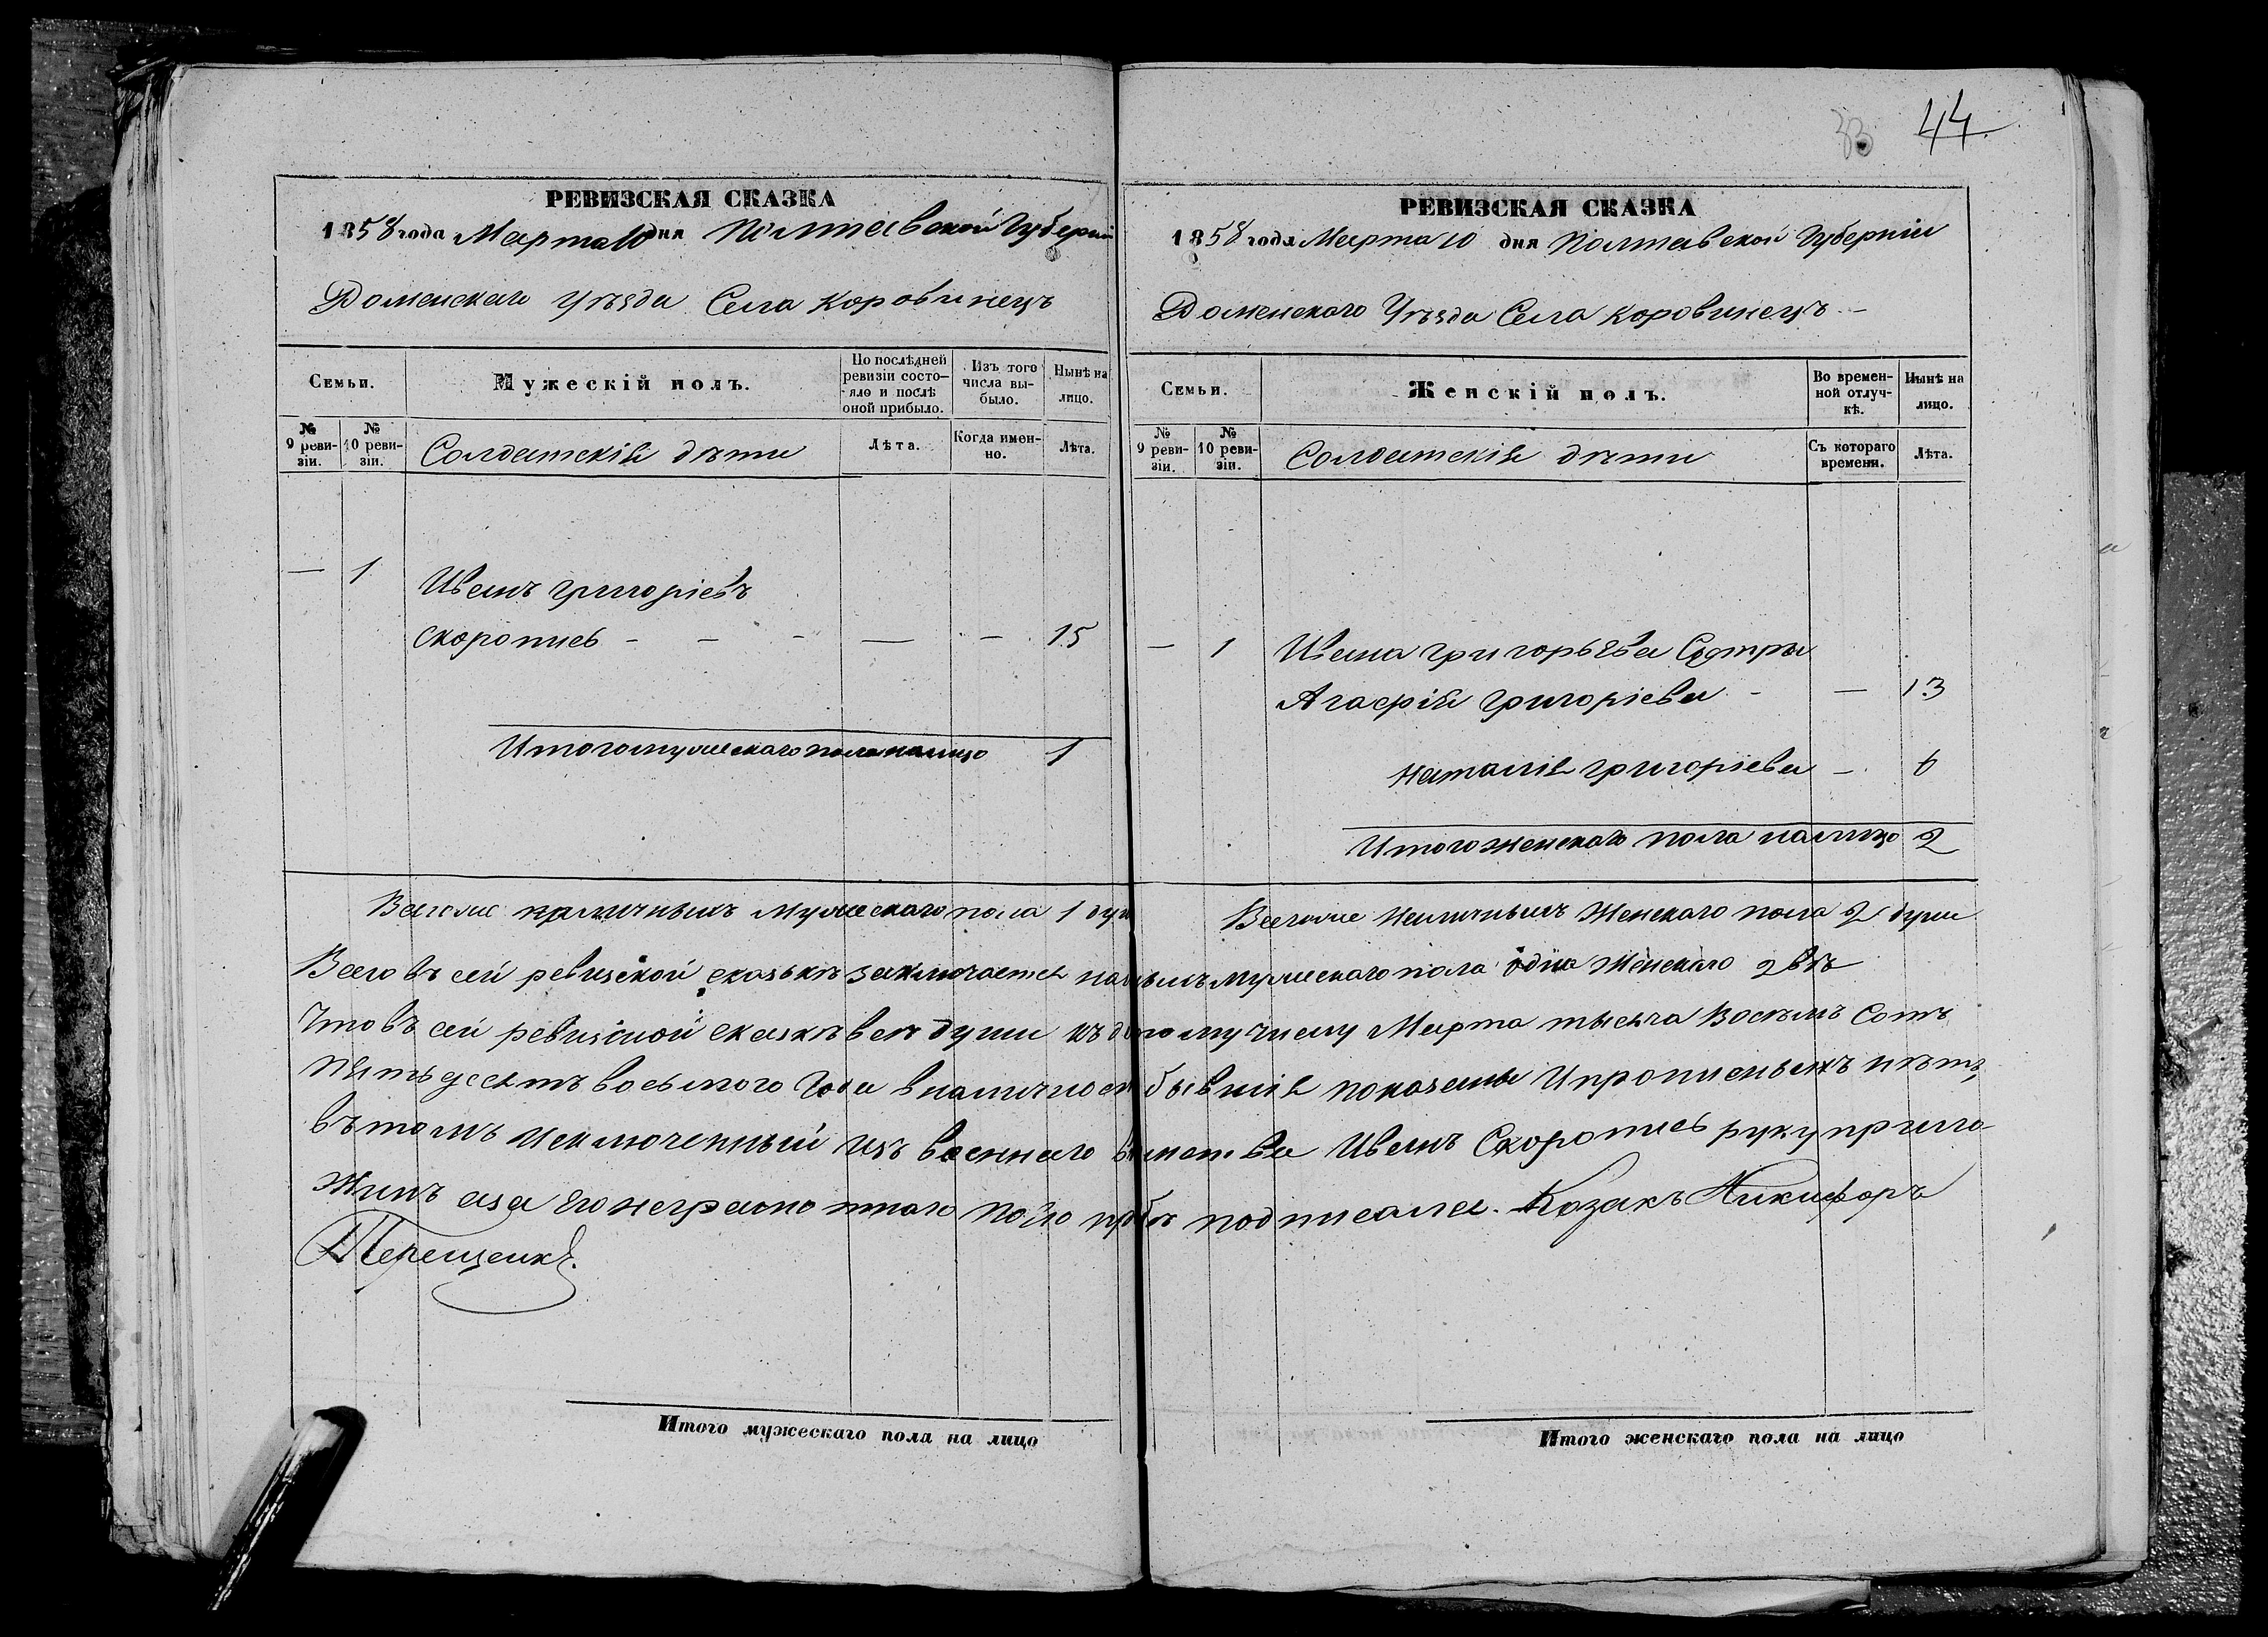 РЕВИЗСКАЯ СКАЗКА
1858 года Марта 10 дня Полтавской Губерніи
Роменскаго Уѣзда Села Коровинецъ
Семьи.
Мужескій полъ.
По послѣдней ревизіи состояло и послѣ оной прибыло.
Изъ того числа выбыло.
Нынѣ на лицо.
№ 9 ревизіи.
№ 10 ревизіи.
Солдатскія дѣти
Лѣта.
Когда именно.
Лѣта.
— 1 Иванъ Григоріевъ
Скоропись - - - — — 15
Итого мужескаго пола налицо 1
Всегоже наличныхъ Мужескаго пола 1 душ
44
РЕВИЗСКАЯ СКАЗКА
1858 года Марта 10 дня Полтавской Губерніи
Роменскаго Уѣзда Села Коровинецъ —
Семьи.
Женскій полъ.
Во временной отлучкѣ.
Нынѣ на лицо.
№ 9 ревизіи.
№ 10 ревизіи.
Солдатскія дѣти
Съ котораго времени.
Лѣта.
— 1 Ивана Григорьева Сестры
Агафія Григоріева - — 13
Наталія Григоріева — 6
Итого женскаго пола налицо 2
Всегоже Наличныхъ Женскаго пола 2 души
Всего въ сей ревизской сказкѣ заключается мужескаго пола одна Женскаго 2 вѣ
Что въ сей ревизской сказкѣ всѣ души къ му числу Марта тысяча Восемь Сотъ
Пятьдесятъ восьмого Года в наличности бывшія показаны И прописныхъ нѣтъ,
въ томъ исключенный изъ военнаго Иванъ Скоропись руку прило-
жилъ аза его неграмотнаго по его прозбѣ подписался. Козакъ Никифоръ
Терещенко.
Итого мужескаго пола на лицо
Итого женскаго пола на лицо